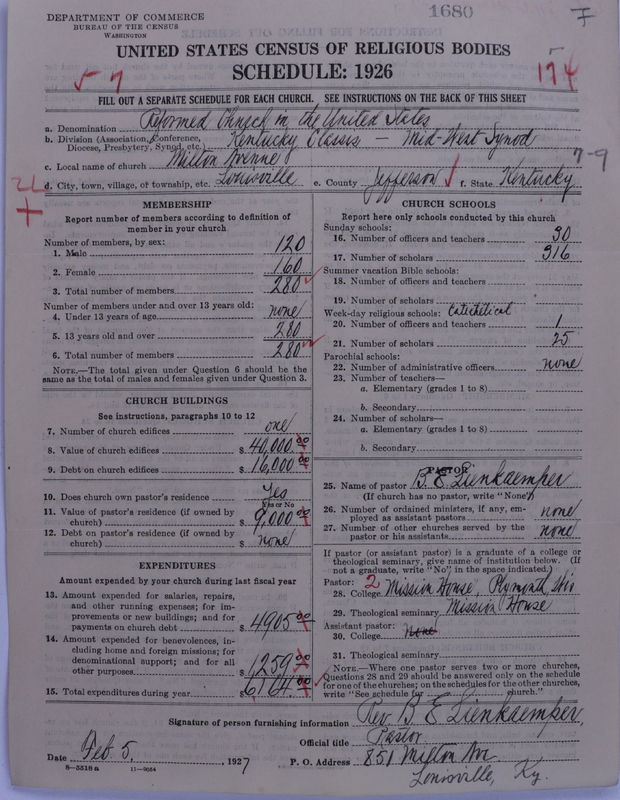 DEPARTMENT OF COMMERCE
BUREAU OF THE CENSUS
WASHINGTON
1680
7
UNITED STATES CENSUS OF RELIGIOUS BODIES
SCHEDULE: 1926
174
FILL OUT A SEPARATE SCHEDULE FOR EACH CHURCH. SEE INSTRUCTIONS ON THE BACK OF THIS SHEET
a. Denomination Reformed Church in the United States
b. Division (Association, Conference, Diocese, Presbytery, Synod, etc.) Kentucky Classis — Mid-West Synod
7-9
c. Local name of church Milton Avenue
d. City, town, village, or township, etc. Louisville e. County Jefferson f. State Kentucky
MEMBERSHIP
Report number of members according to definition of
member in your church
Number of members, by sex:
1. Male 120
2. Female 160
3. Total number of members 280
Number of members under and over 13 years old:
4. Under 13 years of age none
5. 13 years old and over 280
6. Total number of members 280
NOTE.—The total given under Question 6 should be the
same as the total of males and females given under Question 3.
CHURCH BUILDINGS
See instructions, paragraphs 10 to 12
7. Number of church edifices one
8. Value of church edifices $ 40,000.00
9. Debt on church edifices $ 16,000.00
10. Does church own pastor's residence Yes
Yes or No
11. Value of pastor's residence (if owned by
church) $ 9,000.00
12. Debt on pastor's residence (if owned by
church) $ none
EXPENDITURES
Amount expended by your church during last fiscal year
13. Amount expended for salaries, repairs,
and other running expenses; for im-
provements or new buildings; and for
payments on church debt $ 4905.00
14. Amount expended for benevolences, in-
cluding home and foreign missions; for
denominational support; and for all
other purposes $ 1,259.00
15. Total expenditures during year $ 6164.00
CHURCH SCHOOLS
Report here only schools conducted by this church
Sunday schools:
16. Number of officers and teachers 30
17. Number of scholars 316
Summer vacation Bible schools:
18. Number of officers and teachers
19. Number of scholars
Week-day religious schools: Catechetical
20. Number of officers and teachers 1
21. Number of scholars 25
Parochial schools:
22. Number of administrative officers none
23. Number of teachers—
a. Elementary (grades 1 to 8)
b. Secondary
24. Number of scholars—
a. Elementary (grades 1 to 8)
b. Secondary
PASTOR
25. Name of pastor B. E. Lienkaemper
(If church has no pastor, write "None")
26. Number of ordained ministers, if any, em-
ployed as assistant pastors none
27. Number of other churches served by the
pastor or his assistants none
If pastor (or assistant pastor) is a graduate of a college or
theological seminary, give name of institution below. (If
not a graduate, write "No", in the space indicated.)
Pastor: 2
28. College Mission House, Plymouth, Wis
29. Theological seminary Mission House
Assistant pastor:
30. College None
31. Theological seminary
NOTE.—Where one pastor serves two or more churches,
Questions 28 and 29 should be answered only on the schedule
for one of the churches; on the schedules for the other churches,
write "See schedule for church."
Signature of person furnishing information Rev. B. E. Lienkaemper,
Official title Pastor
Date Feb 5, 1927 P. O. Address 851 Milton Av
8—5518a 11—9054
Louisville, Ky.